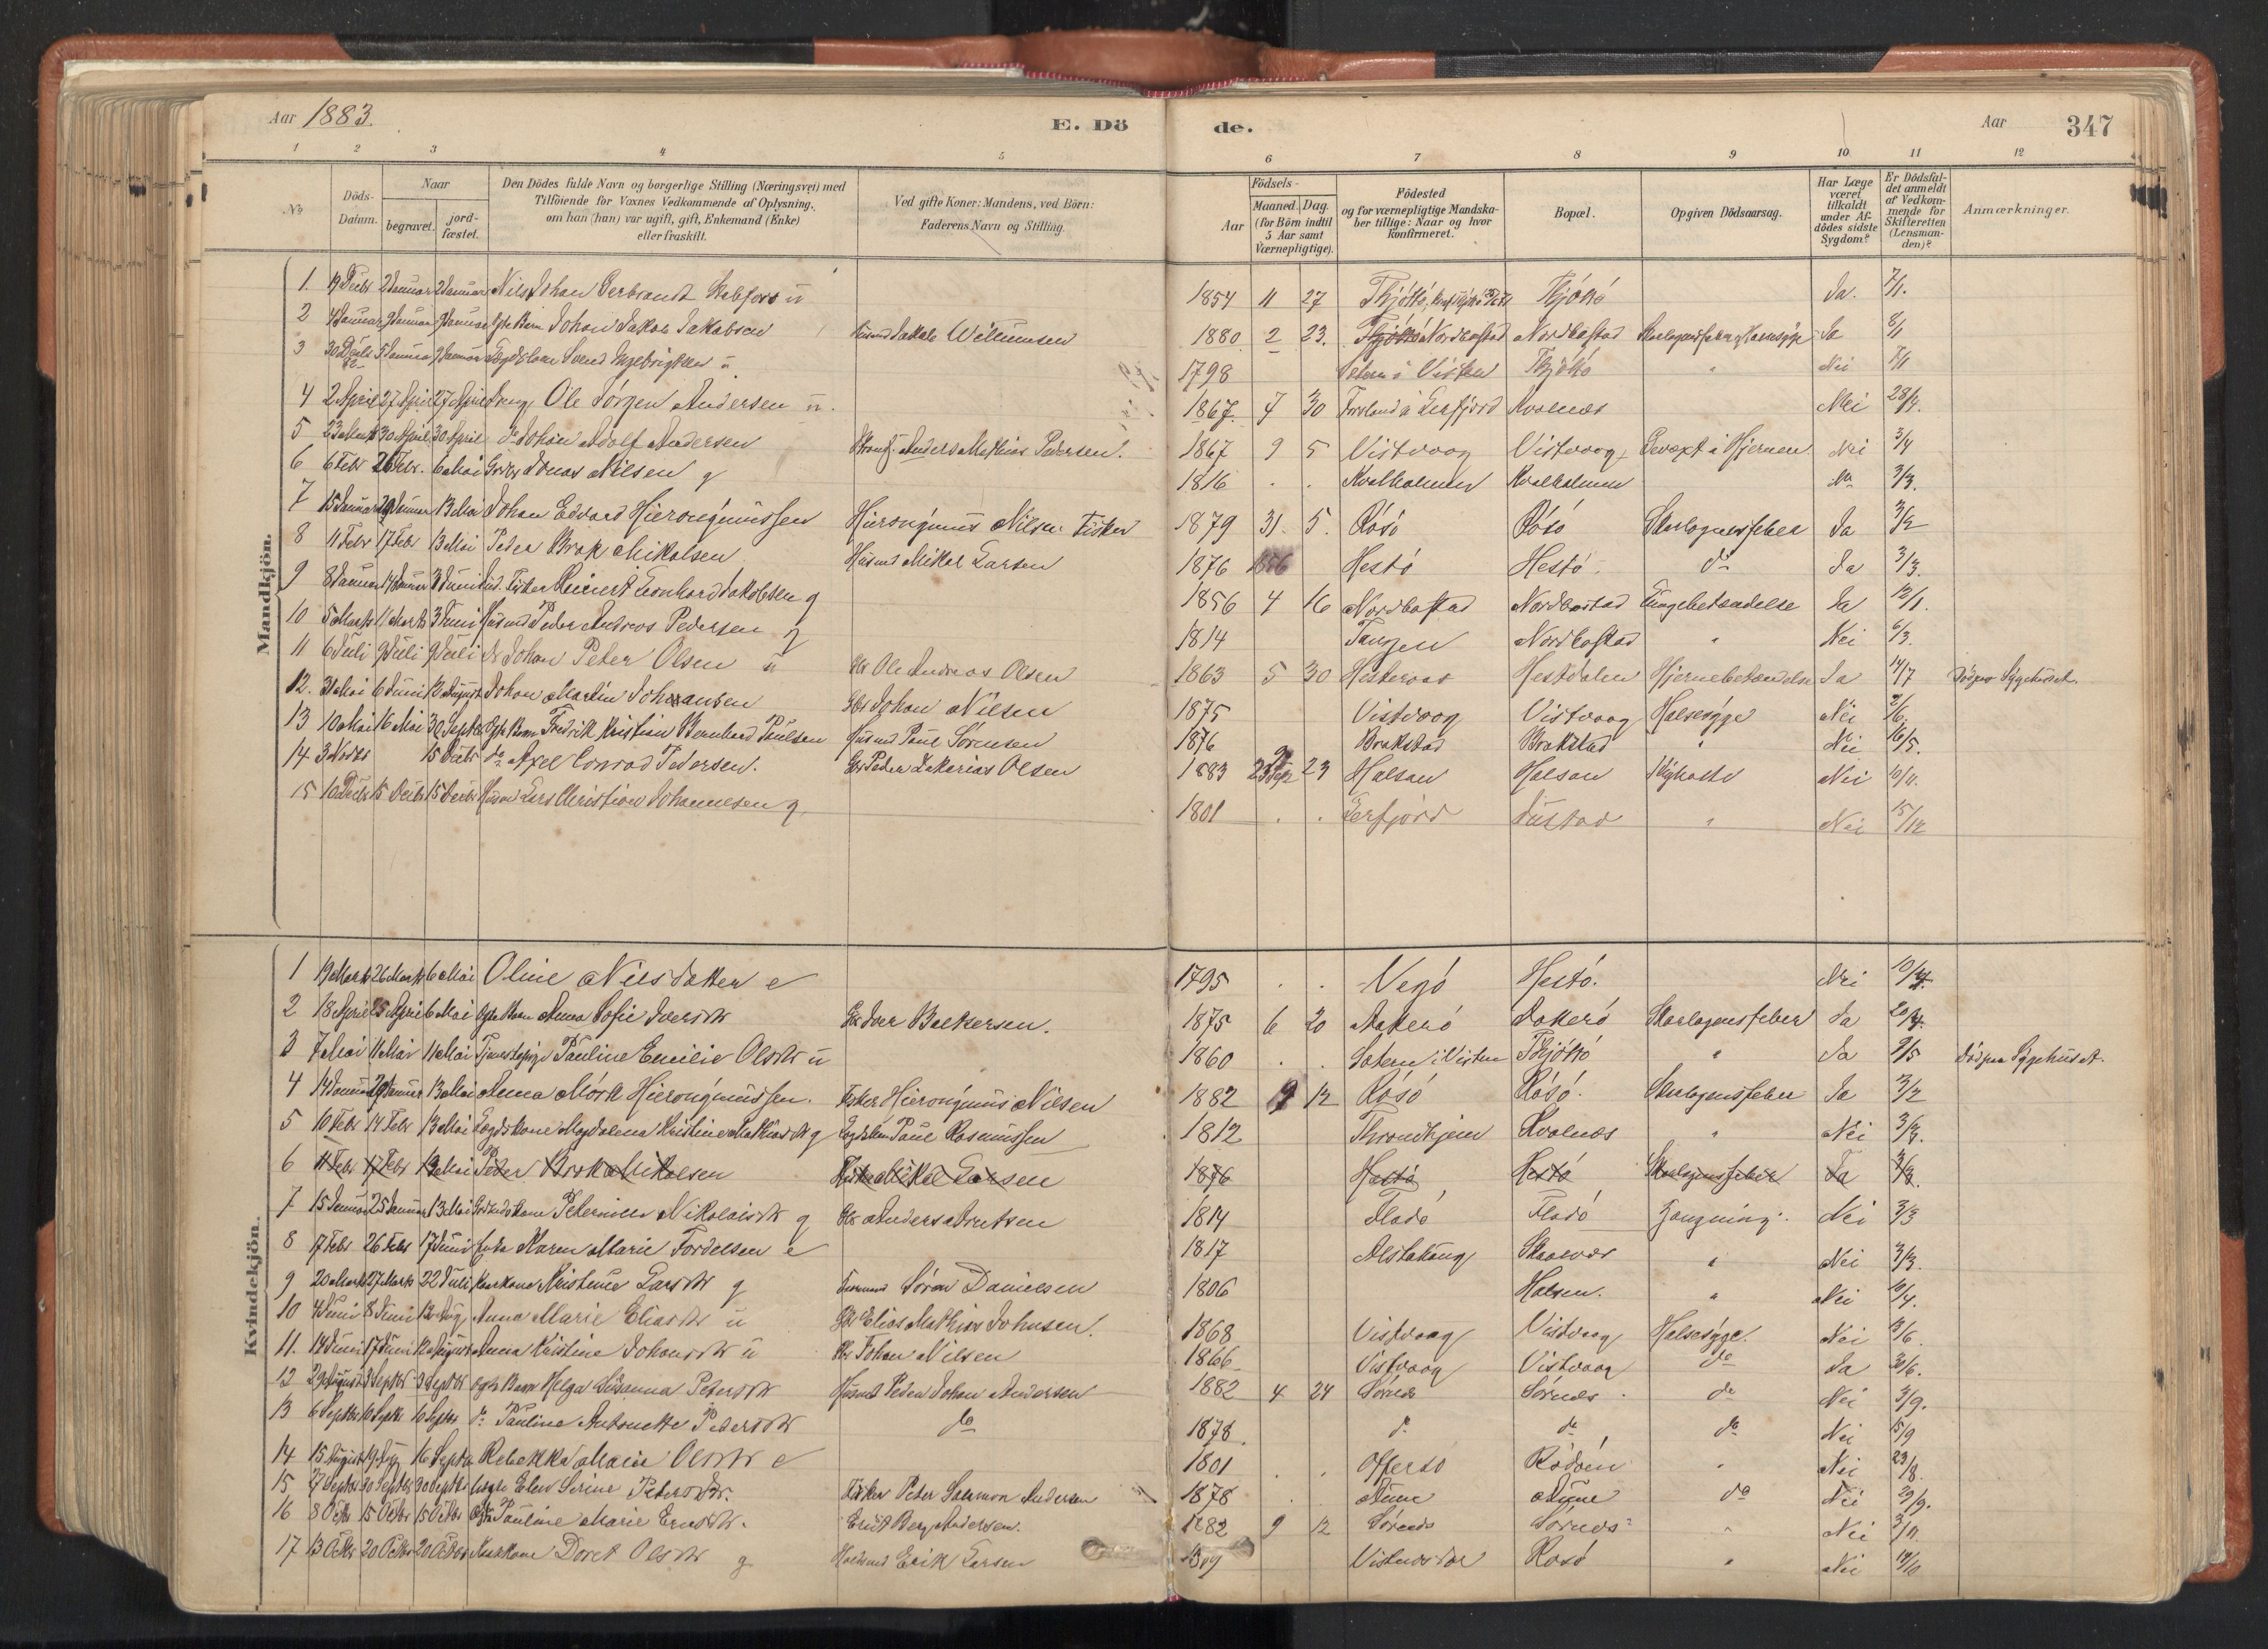 Aar 1883.
E. Dö
de.
Aar
347
1 2 3 4 5 6 7 8 9 10 11 12
No
Döds-Datum.
Naar
begravet.
jord-fæstet.
Den Dödes fulde Navn og borgerlige Stilling (Næringsvei) med
Tilföiende for Voxnes Vedkommende af Oplysning,
om han (hun) var ugift, gift, Enkemand (Enke)
eller fraskilt.
Ved gifte Koner: Mandens, ved Börn:
Faderens Navn og Stilling.
Födsels-
Aar
Maaned. Dag.
(for Börn indtil
5 Aar samt
Værnepligtige).
Födested
og for værnepligtige Mandska-
ber tillige: Naar og hvor
konfirmeret.
Bopæl.
Opgiven Dödsaarsag.
Har Læge
været
tilkaldt
under Af-
dödes sidste
Sygdom?
Er Dödsfal-
det anmeldt
af Vedkom-
mende for
Skifteretten
(Lensman-
den)?
Anmærkninger.
Mandkjön.
1 19 Decbr 2 Januar 2 Januar Nils Johan Gerbrandt u 1854 11 27 Thjøttø Thjøttø Ja. 7/1.
2 4 Januar 9 Januar 9 Januar Johan Jakob Jakobsen Husmd Jakob Willumsen 1880 2 23. Nordbostad Nordbostad Skarlagensfeber Ja 8/1
3 30 Decbr 5 Januar 9 Januar Svend Ingebrigtsen u 1798 i Visten Thjøttø " Nei 7/1
4 2 April 27 April 27 April Dreng Ole Jørgen Andersen u. 1867. 7 30 Forsland i Leirfjord Kvalnæs Nei 28/4.
5 23 Marts 30 April 30 April do Johan Adolf Andersen Anders Mathias Pedersen. 1867 9 5 Vistvaag Vistvaag Gevext i Hjernen Nei 3/4
6 6 Febr 26 Febr. 6 Mai Jonas Nilsen g 1816 . . Kvalholmen Kvalholmen 3/3.
7 15 Januar 29 Januar 13 Mai Johan Edvard Hieronymussen Hieronymus Nilsen Fisker 1879 31. 5. Rösö Rösö Skarlagensfeber Ja 3/2
8 11 Febr 17 Febr 13 Mai Peder Brok Mikalsen Husmd Mikal Larsen 1876 Hestö Hestö. do Ja 3/3.
9 8 Januar 14 Januar 3 Juni Fisker Meinert Leonhard Jakobsen g 1856 4 16 Nordbostad Nordbostad Lungebetændelse Ja 12/1.
10 5 Marts 11 Marts 3 Juni Husmd Peder Andreas Pedersen g 1814 Tangen Nordbostad " Nei 6/3.
11 6 Juli 9 Juli 9 Juli Johan Peter Olsen u Gbr Ole Andreas Olsen 1863 5 30 Hesteraas Hestdalen Hjernebetændelse Ja 14/7 Död paa Sygehuset.
12. 31 Mai 6 Juni 12 August Johan Martin Johansen Gbr Johan Nilsen 1875 Vistvaag Vistvaag Halsesyge Nei 2/6.
13 10 Mai 16 Mai 30 Septbr Fredrik Kristian Bernhard Paulsen Husmd Paul Sørensen 1876 Brakstad Brakstad " Nei 16/5.
14 3 Novbr 15 Decbr do Axel Conrad Pedersen. Gbr Peder Zakarias Olsen 1883 23 Halsan Halsan Kighoste Nei 10/11.
15 10 Decbr 15 Decbr 15 Decbr Husmd Lars Christian Johannesen g 1801 . . Leirfjord " Nei 15/12
Kvindekjön.
1 19 Marts 26 Marts 6 Mai Oline Nilsdatter e 1795 . . Vegö Hestö. Nei 10/4.
2 18 April 25 April 6 Mai Anna Sofie Iversdtr Gbr Iver Baltzersen. 1875 6 20 Aakerö Aakerö Skarlagensfeber Ja 20/4.
3 7 Mai 11 Mai 11 Mai Tjenestepige Pauline Emilie Olsdtr u 1860 . . i Visten Thjøttø " Ja 9/5 Död paa Sygehuset.
4 14 Januar 29 Januar 13 Mai Anna Mörk Hieronymussen. Fisker Hieronymus Nilsen 1882 9 12 Rösö Rösö. Skarlagensfeber Ja 3/2
5 10 Febr 14 Febr 13 Mai Lægdskone Magdalena Kristine Mathiasdtr g Paul Rasmussen 1812 Throndhjem Kvalnæs " Nei 3/3.
6 11 Febr 17 Febr 13 Mai Peder Brok Mikalsen Mikal Larsen 1876 Hestö Hestö Skarlagensfeber Ja 3/3.
7 15 Januar 25 Januar 13 Mai Peternilla Nikolaisdtr g Gbr Anders Arntsen 1814 Flodö Flodö Nei 3/3
8 17 Febr 26 Febr 17 Juni Enke Karen Marie Tordelsen e 1817 Alstahaug Skaasvær " Nei 3/3.
9 20 Marts 27 Marts 22 Juli Kristense Larsdtr g Sören Danielsen 1806 Halsen. " Nei 10/4.
10 4 Juni 8 Juni 12 Aug Anna Marie Eliasdtr u Gbr Elias Mathias Johnsen. 1868 Vistvaag Vistvaag Halsesyge. Nei 12/6.
11. 14 Juni 17 Juni 12 August Anna Kristine Johansdtr u Gbr Johan Nilsen 1866 Vistvaag Vistvaag do Ja 30/6.
12 29 August 3 Septbr 3 Septbr Helga Susanna Petersdtr Husmd Peder Johan Andersen 1882 4 24 Sörnes Sörnes. do Nei 3/9.
13 6 Septbr 16 Septbr 16 Septbr do Pauline Antonette Petersdtr do 1878. do do do Nei 15/9
14 15 August 19 Aug 16 Septbr Rebekka Maria Olsdtr e 1801 . . Offersö Rödöen " Nei 23/8.
15 27 Septbr 30 Septbr 30 Septbr Elen Serine Petersdtr. Fisker Peter Salamon Andersen 1878 . . Aune Aune do Nei 29/9.
16 8 Octbr 15 Octbr 15 Octbr Pauline Marie Ernstdtr. Ernst Berg Andersen. 1882 9 12 Sörnes Sörnes " Nei 3/11
17 13 Octbr 20 Octbr 20 Octbr Doret Olsdtr g Erik Larsen 1809 Rosö " Nei 19/10